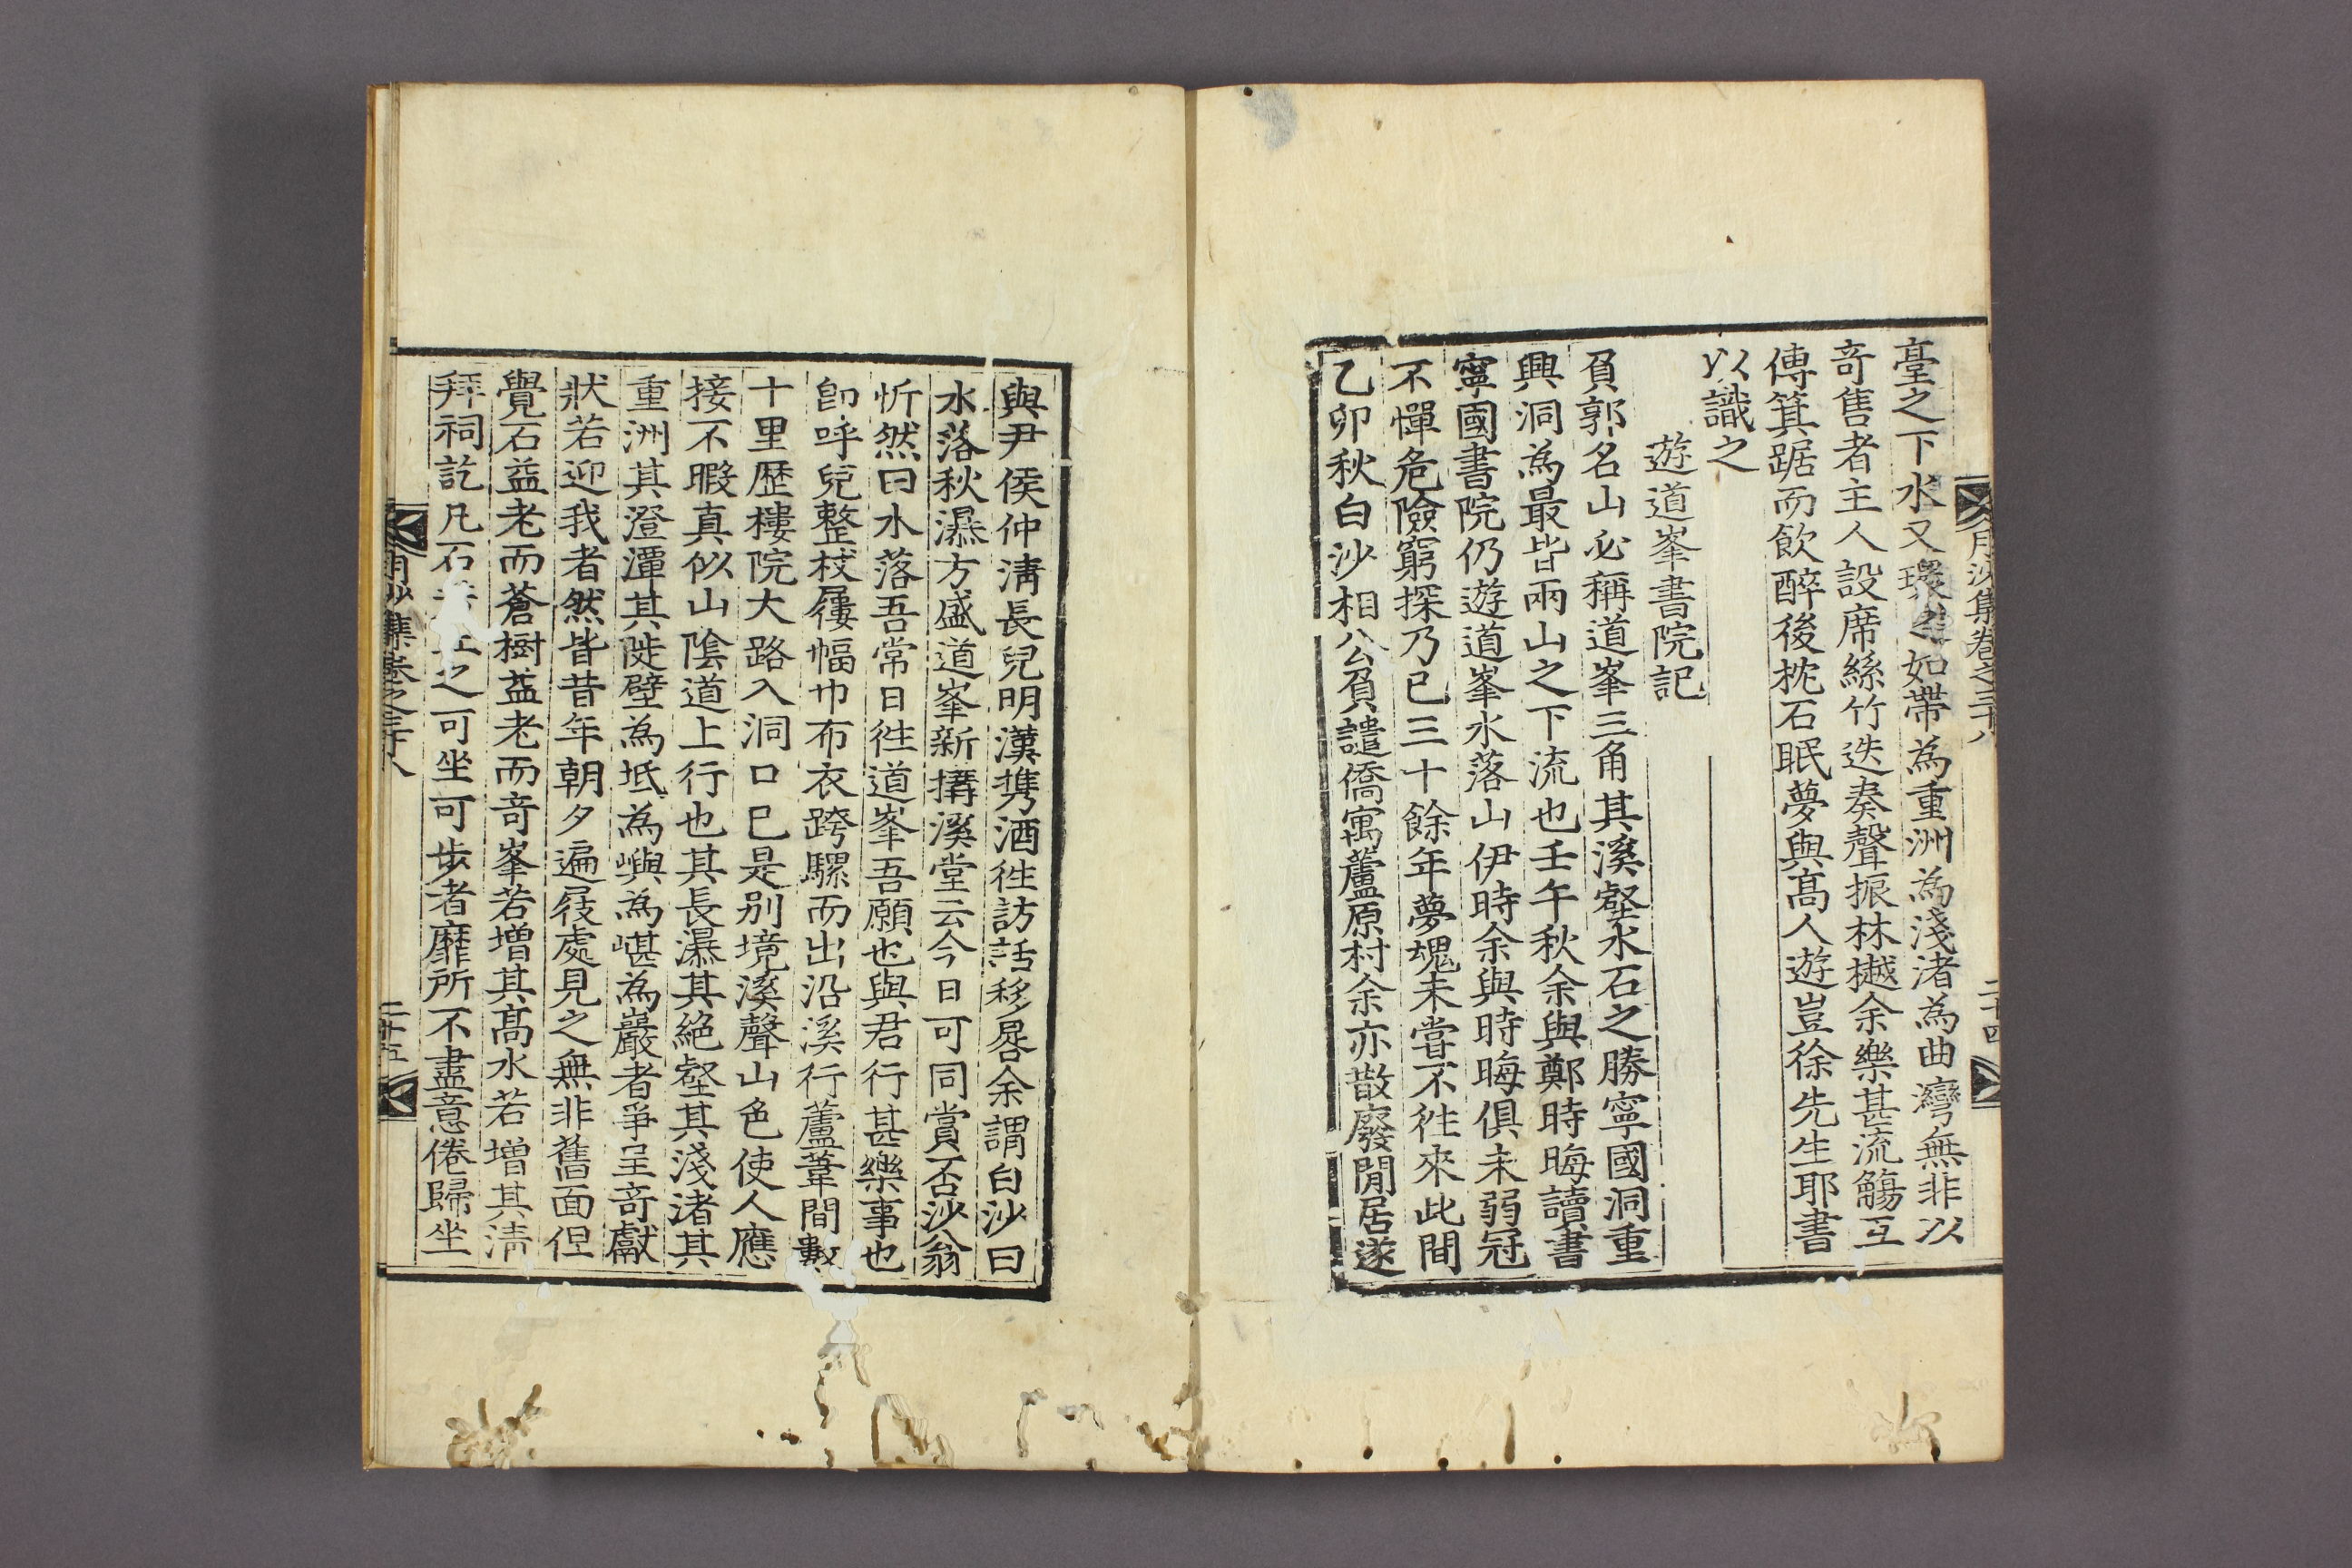 月沙集卷之三十八
二十四
臺之下水又環如帶為重洲為淺渚為曲灣無非以
奇售者主人設席絲竹迭奏聲振林樾余樂甚流觴互
傳箕踞而飲醉後枕石眠夢與髙人遊豈徐先生耶書
以識之
遊道峯書院記
負郭名山必稱道峯三角其溪壑水石之勝寧國洞重
興洞為最皆兩山之下流也壬午秋余與鄭時晦讀書
寧國書院仍遊道峯水落山伊時余與時晦俱未弱冠
不憚危險窮探乃已三十餘年夢魂未嘗不徃來此間
乙卯秋白沙相公負譴僑寓蘆原村余亦散廢閒居遂
與尹侯仲淸長兒明漢携酒徃訪話移晷余謂白沙曰
水落秋瀑方盛道峯新搆溪堂云今日可同賞否沙翁
忻然曰水落吾常日徃道峯吾願也與君行甚樂事也
卽呼兒整杖屨幅巾布衣跨騾而出沿溪行蘆葦間數
十里歷樓院大路入洞口已是別境溪聲山色使人應
接不暇真似山陰道上行也其長瀑其絕壑其淺渚其
重洲其澄潭其陡壁為坻為嶼為嵁為巖者爭呈奇獻
狀若迎我者然皆昔年朝夕遍屐處見之無非舊面但
覺石益老而蒼樹益老而奇峯若增其髙水若增其淸
拜祠訖凡石之可坐可步者靡所不盡意倦歸坐
月沙集卷之三十八
二十五